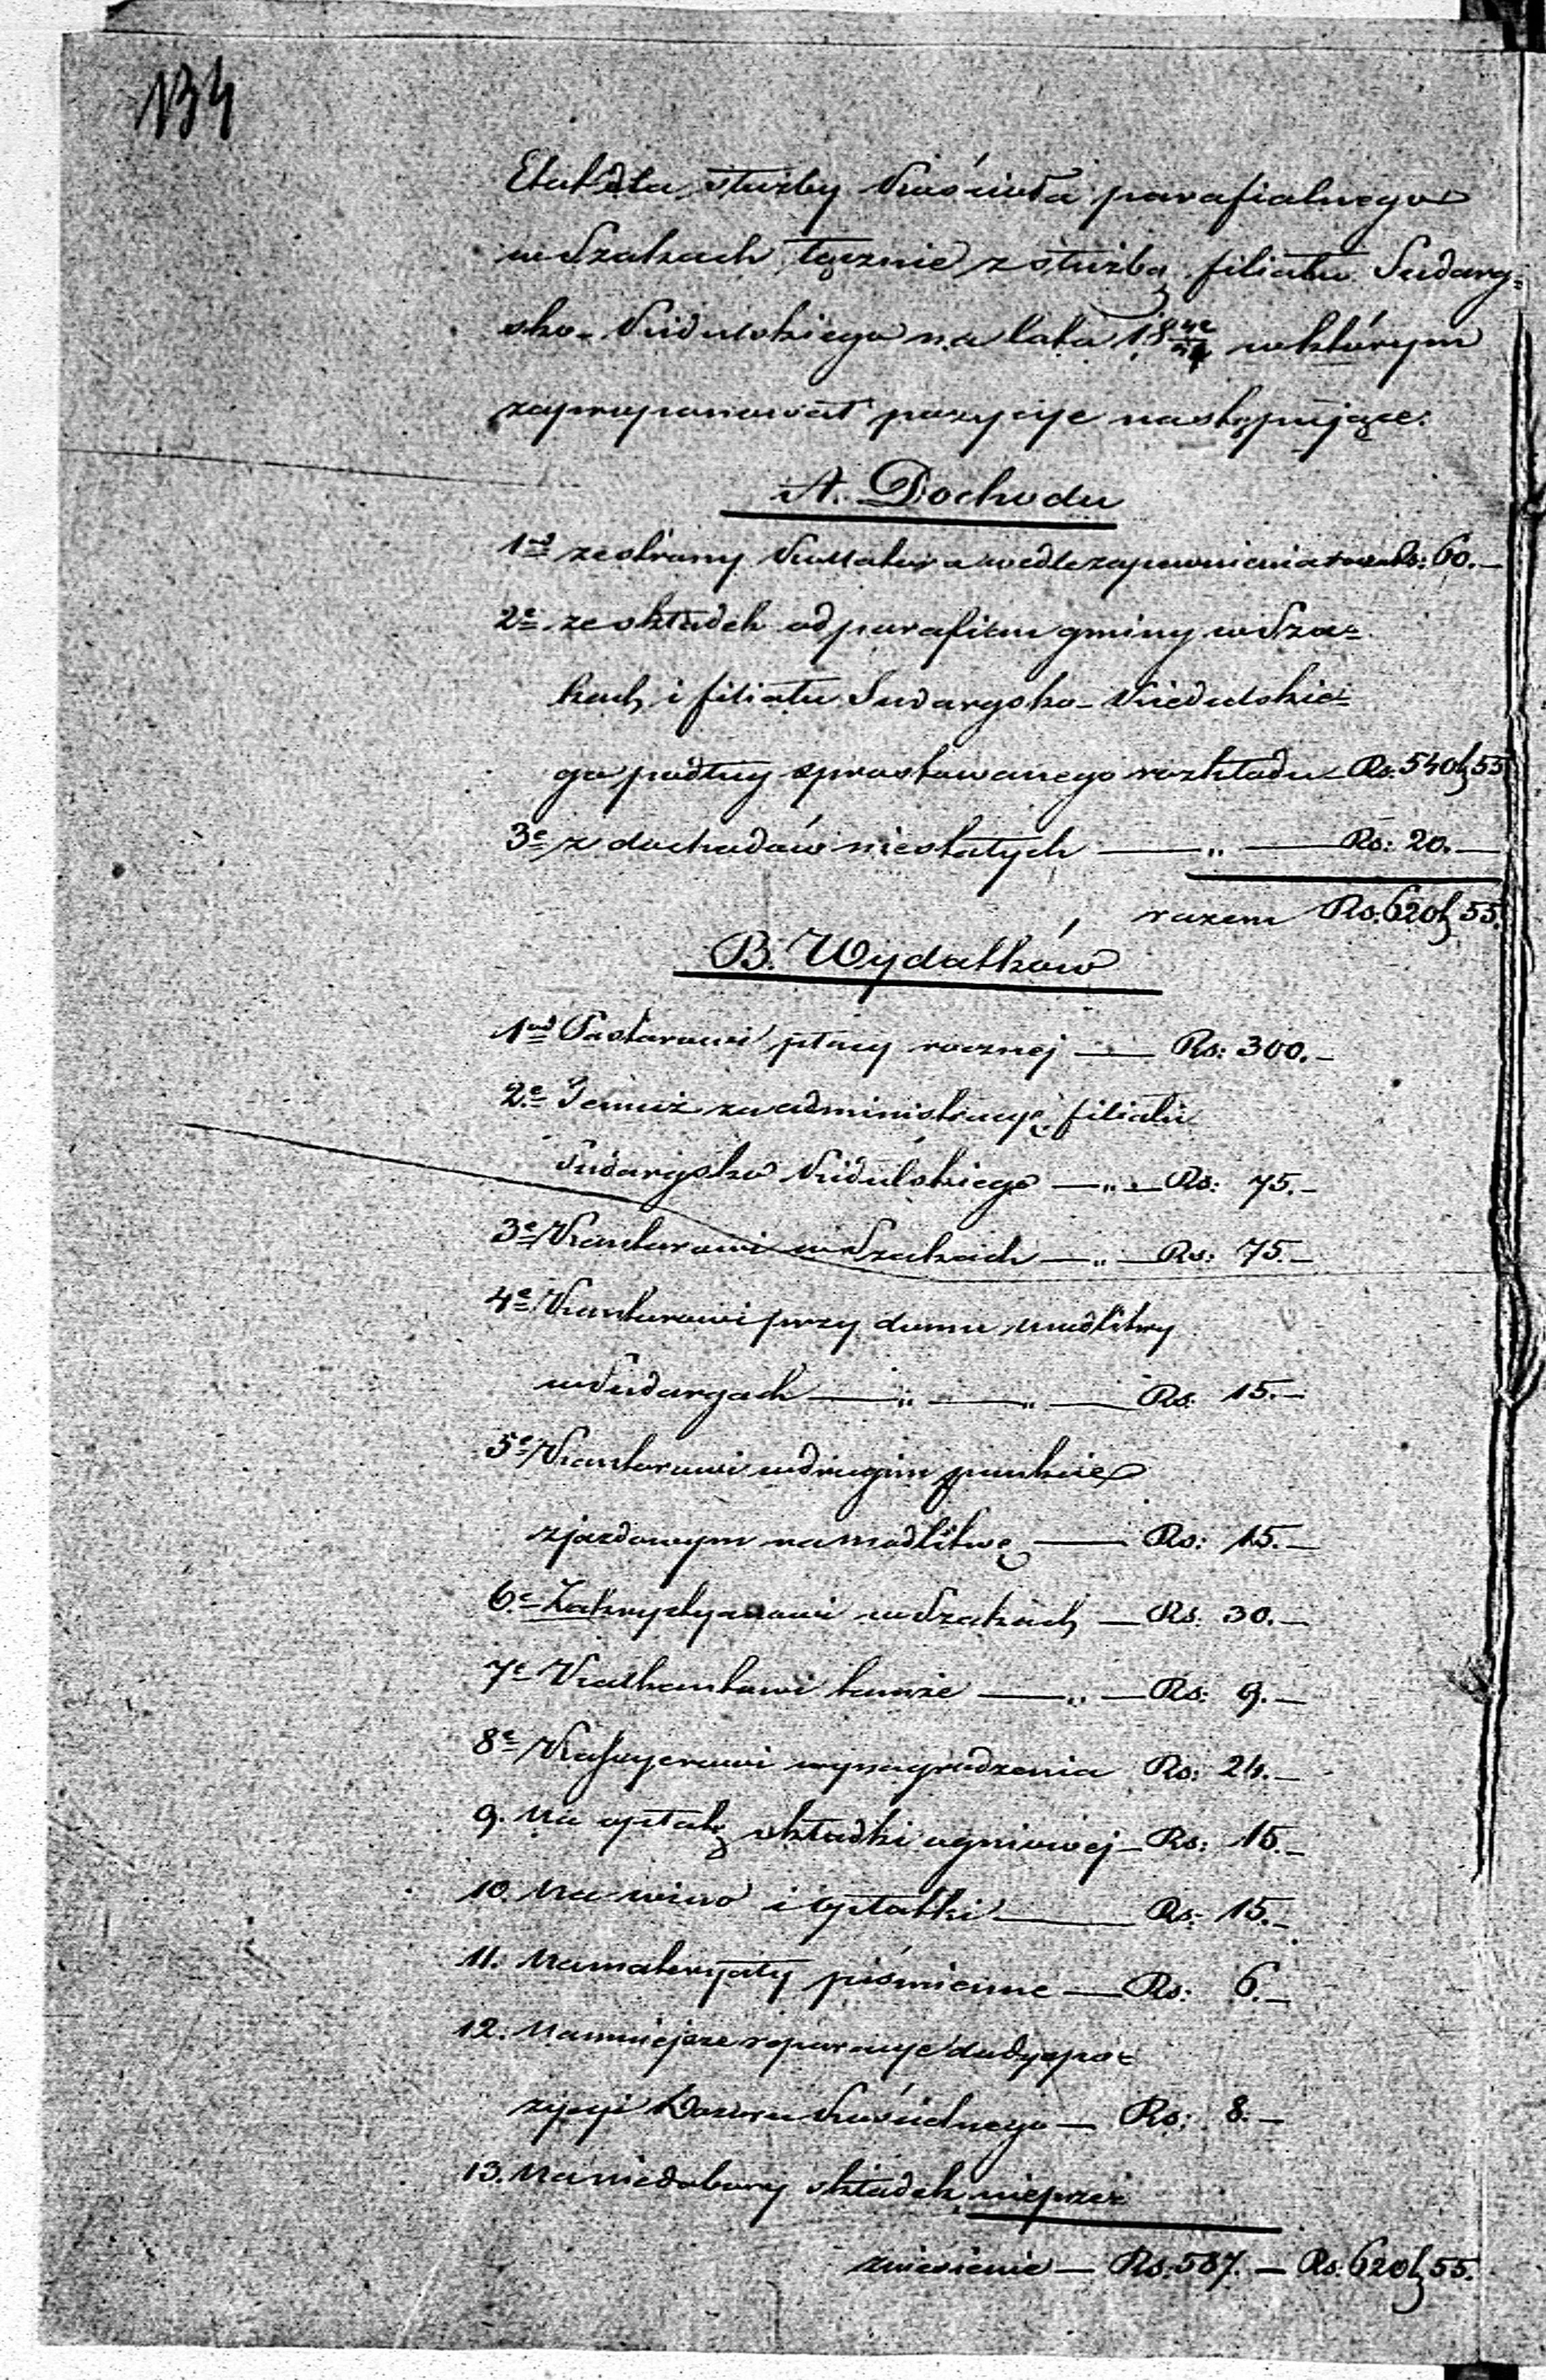 134
Etat dla służby Kościoła parafialnego
w Szakach łącznie z służbą filiału Sudarg=
sko-Kidulskiego na lata 18 w którym
zaproponował pozycye następujące:
A. Dochodu
1mo ze strony Kollatora wedle zapewnienia Rs: 60.—
2e ze składek od parafian gminy w Sza=
kach i filiału Sudargsko-Kiedulskie=
go podług sprostowanego rozkładu Rs. 540 k 55
3e z dochodów niestałych — „ — Rs: 20.—
razem Rs. 620 k 55.
B. Wydatków
1mo Pastorowi płacy rocznej — Rs: 300.—
2e Temuż za administracyę filiału
Sudargsko Kidulskiego — „ — Rs: 75.—
3e Kantorowi w Szakach — „ — Rs: 75.—
4e Kantorowi przy domu modlitwy
w Sudargach — „ — „ — Rs. 15.—
5e Kantorowi w drugim punkcie
zjazdowym na modlitwę — Rs: 15.—
6e Zakrystyanowi w Szakach — Rs. 30.—
7e Kalkantowi tamże — „ — Rs: 9.—
8e Kassyerowi wynagrodzenia Rs: 24.—
9. Na opłatę składki ogniowej — Rs: 15.—
10. Na wino i opłatki — Rs: 15.—
11. Na materyały piśmienne — Rs: 6.—
12. Na mniejsze reparacye do dyspo=
zycyi Dozoru Kościelnego — Rs: 8.—
13. Na niedobory składek nieprze=
zniesienie — Rs: 587. — Rs. 620 k 55.